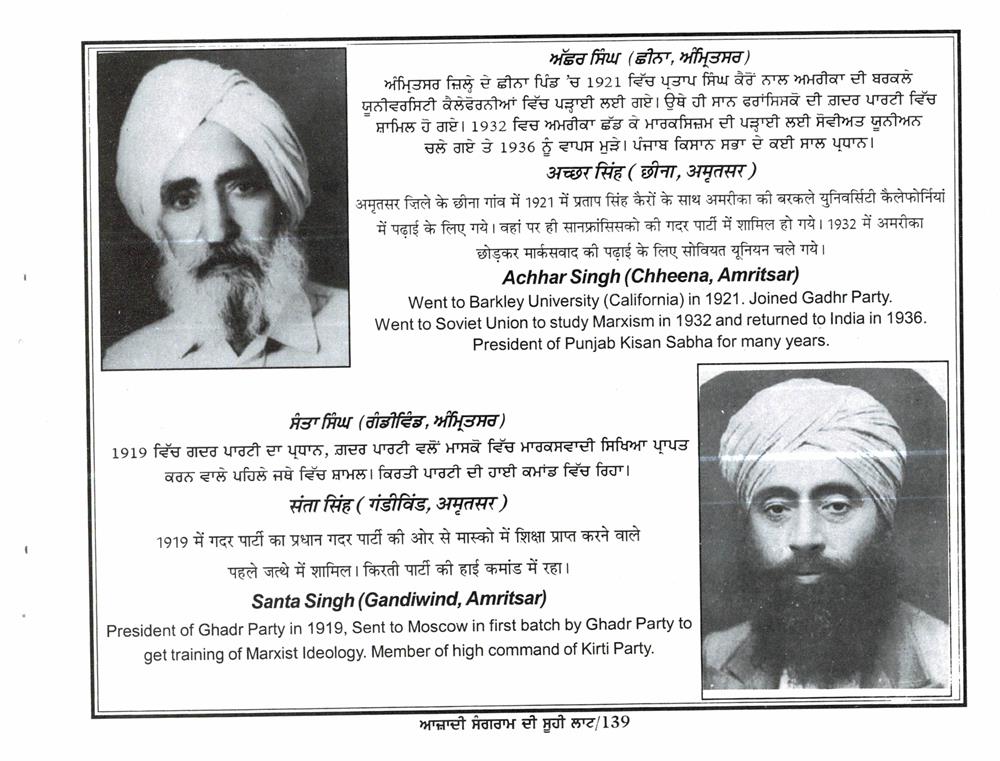 ਅੱਛਰ ਸਿੰਘ (ਛੀਨਾ, ਅੰਮ੍ਰਿਤਸਰ)
ਅੰਮ੍ਰਿਤਸਰ ਜ਼ਿਲ੍ਹੇ ਦੇ ਛੀਨਾ ਪਿੰਡ 'ਚ 1921 ਵਿੱਚ ਪ੍ਰਤਾਪ ਸਿੰਘ ਕੈਰੋਂ ਨਾਲ ਅਮਰੀਕਾ ਦੀ ਬਰਕਲੇ
ਯੂਨੀਵਰਸਿਟੀ ਕੈਲੇਫੋਰਨੀਆਂ ਵਿੱਚ ਪੜ੍ਹਾਈ ਲਈ ਗਏ। ਉਥੇ ਹੀ ਸਾਨ ਫਰਾਂਸਿਸਕੋ ਦੀ ਗ਼ਦਰ ਪਾਰਟੀ ਵਿੱਚ
ਸ਼ਾਮਿਲ ਹੋ ਗਏ। 1932 ਵਿਚ ਅਮਰੀਕਾ ਛੱਡ ਕੇ ਮਾਰਕਸਿਜ਼ਮ ਦੀ ਪੜ੍ਹਾਈ ਲਈ ਸੋਵੀਅਤ ਯੂਨੀਅਨ
ਚਲੇ ਗਏ ਤੇ 1936 ਨੂੰ ਵਾਪਸ ਮੁੜੇ। ਪੰਜਾਬ ਕਿਸਾਨ ਸਭਾ ਦੇ ਕਈ ਸਾਲ ਪ੍ਰਧਾਨ।
अच्छर सिंह ( छीना, अमृतसर)
अमृतसर ज़िले के छीना गांव में 1921 में प्रताप सिंह कैरों के साथ अमरीका की बरकले युनिवर्सिटी कैलेफोर्निया
में पढ़ाई के लिए गये। वहां पर ही सानफ्रांसिसको की गदर पार्टी में शामिल हो गये। 1932 में अमरीका
छोड़कर मार्कसवाद की पढ़ाई के लिए सोवियत यूनियन चले गये।
Achhar Singh (Chheena, Amritsar)
Went to Barkley University (California) in 1921. Joined Gadhr Party.
Went to Soviet Union to study Marxism in 1932 and returned to India in 1936.
President of Punjab Kisan Sabha for many years.
ਸੰਤਾ ਸਿੰਘ (ਗੰਡੀਵਿੰਡ, ਅੰਮ੍ਰਿਤਸਰ)
1919 ਵਿੱਚ ਗਦਰ ਪਾਰਟੀ ਦਾ ਪ੍ਰਧਾਨ, ਗ਼ਦਰ ਪਾਰਟੀ ਵਲੋਂ ਮਾਸਕੋ ਵਿੱਚ ਮਾਰਕਸਵਾਦੀ ਸਿਖਿਆ ਪ੍ਰਾਪਤ
ਕਰਨ ਵਾਲੇ ਪਹਿਲੇ ਜਥੇ ਵਿੱਚ ਸ਼ਾਮਲ। ਕਿਰਤੀ ਪਾਰਟੀ ਦੀ ਹਾਈ ਕਮਾਂਡ ਵਿੱਚ ਰਿਹਾ।
संता सिंह ( गंडीविंड, अमृतसर )
1919 में गदर पार्टी का प्रधान गदर पार्टी की ओर से मास्को में शिक्षा प्राप्त करने वाले
पहले जत्थे में शामिल। किरती पार्टी की हाई कमांड में रहा।
Santa Singh (Gandiwind, Amritsar)
President of Ghadr Party in 1919, Sent to Moscow in first batch by Ghadr Party to
get training of Marxist Ideology. Member of high command of Kirti Party.
ਆਜ਼ਾਦੀ ਸੰਗਰਾਮ ਦੀ ਸੂਹੀ ਲਾਟ/139